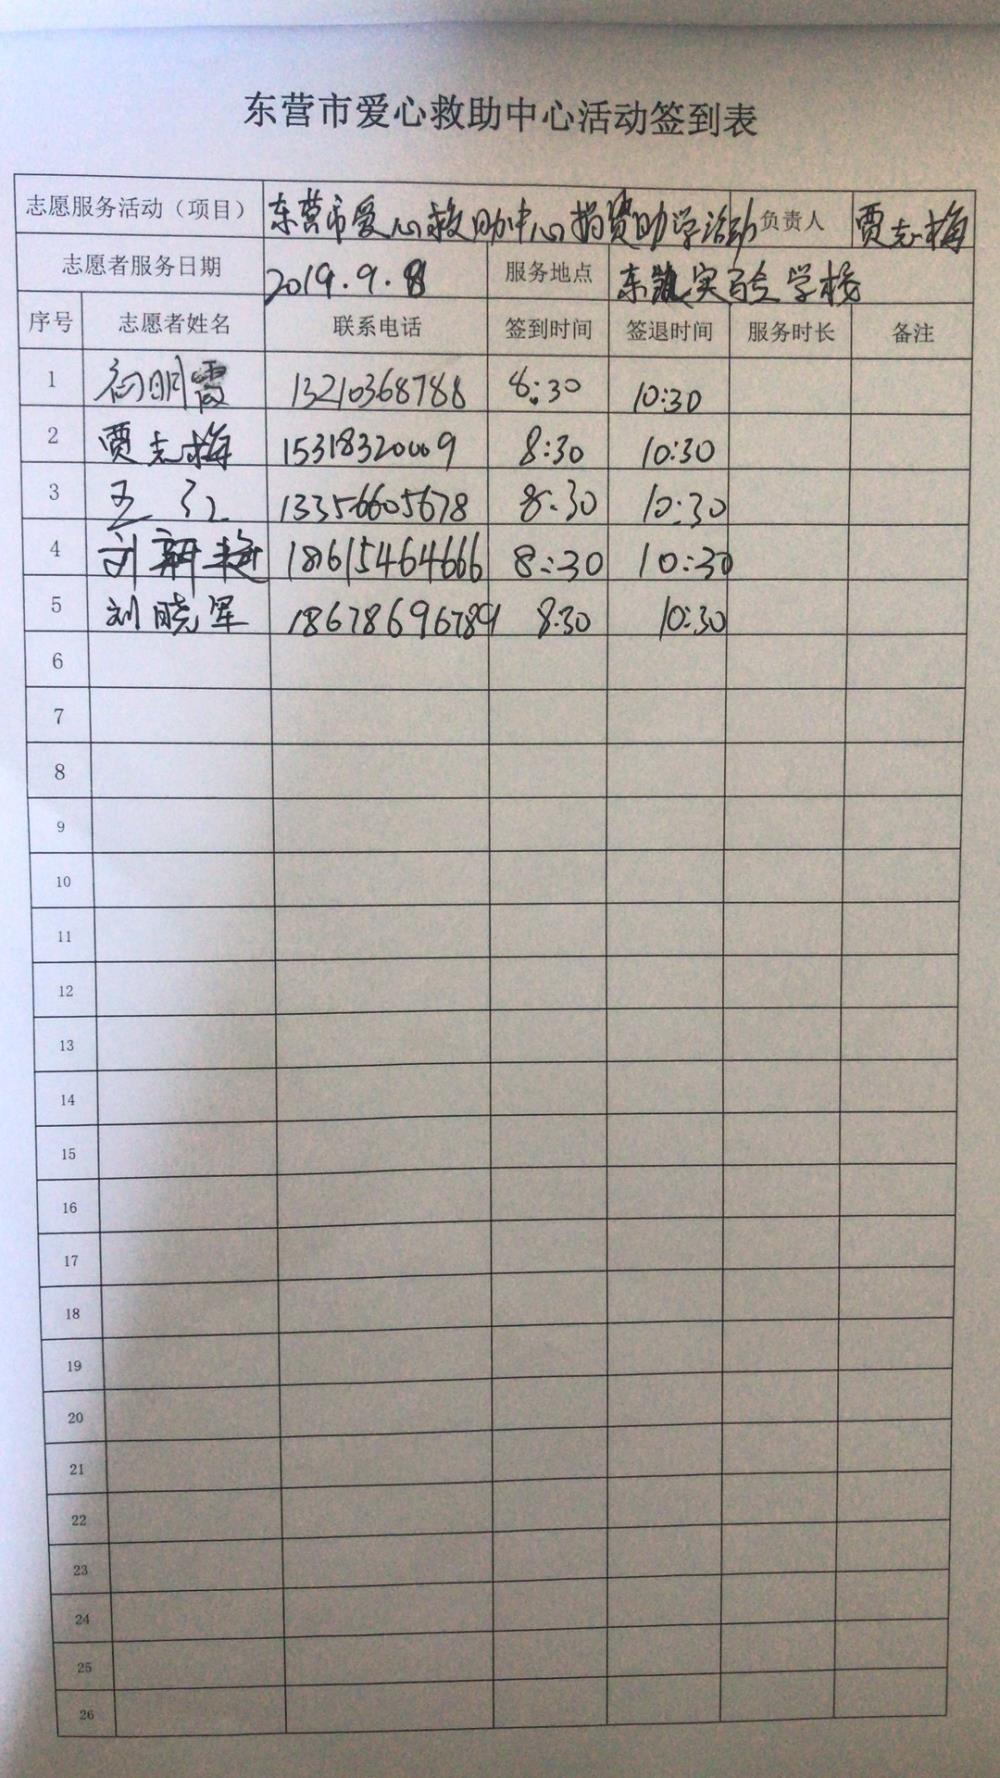 东营市爱心救助中心活动签到表
志愿服务活动（项目） 东营市爱心救助中心捐资助学活动 负责人 贾志梅
志愿者服务日期 2019.9.8 服务地点 东凯实验学校
序号 志愿者姓名 联系电话 签到时间 签退时间 服务时长 备注
1 明霞 13210368788 8:30 10:30
2 贾志梅 15318320009 8:30 10:30
3 王红 13356605678 8:30 10:30
4 刘新梅 18615464666 8:30 10:30
5 刘晓军 18678696789 8:30 10:30
6
7
8
9
10
11
12
13
14
15
16
17
18
19
20
21
22
23
24
25
26